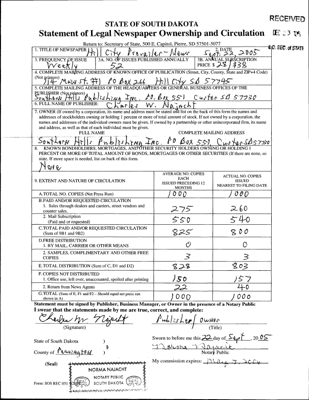 RECEIVED
STATE OF SOUTH DAKOTA
Statement of Legal Newspaper Ownership and Circulation
S.D. SEC. OF STATE
Return to: Secretary of State, 500 E. Capitol, Pierre, SD 57501-5077
1. TITLE OF NEWSPAPER Hill City Prevailer-News
2. DATE Sept. 22, 2005
3. FREQUENCY OF ISSUE Weekly
3A. NO. OF ISSUES PUBLISHED ANNUALLY 52
3B. ANNUAL SUBSCRIPTION PRICE $ 28/$38
4. COMPLETE MAILING ADDRESS OF KNOWN OFFICE OF PUBLICATION (Street, City, County, State and ZIP+4 Code) (Not printers)
114 Main St. #1 PO Box 266 Hill City SD 57745
5. COMPLETE MAILING ADDRESS OF THE HEADQUARTERS OR GENERAL BUSINESS OFFICES OF THE PUBLISHER (Not printers)
Southern Hills Publishing Inc. PO Box 551 Custer SD 57730
6. FULL NAME OF PUBLISHER: Charles W. Najacht
7. OWNER (If owned by a corporation, its name and address must be stated and list on the back of this form the names and
addresses of stockholders owning or holding 1 percent or more of total amount of stock. If not owned by a corporation, the
names and addresses of the individual owners must be given. If owned by a partnership or other unincorporated firm, its name
and address, as well as that of each individual must be given.
FULL NAME
COMPLETE MAILING ADDRESS
Southern Hills Publishing Inc. PO Box 551 Custer SD 57730
8. KNOWN BONDHOLDERS, MORTGAGES, AND OTHER SECURITY HOLDERS OWNING OR HOLDING 1
PERCENT OR MORE OF TOTAL AMOUNT OF BONDS, MORTGAGES OR OTHER SECURITIES (If there are none, so
state. If more space is needed, list on back of this form.
None
9. EXTENT AND NATURE OF CIRCULATION
AVERAGE NO. COPIES EACH ISSUED PRECEDING 12 MONTHS
ACTUAL NO. COPIES ISSUED NEAREST TO FILING DATE
A. TOTAL NO. COPIES (Net Press Run) 1000 1000
B. PAID AND/OR REQUESTED CIRCULATION
1. Sales through dealers and carriers, street vendors and counter sales. 275 260
2. Mail Subscription (Paid and or requested) 550 540
C. TOTAL PAID AND/OR REQUESTED CIRCULATION (Sum of 9B1 and 9B2) 825 800
D. FREE DISTRIBUTION
1. BY MAIL, CARRIER OR OTHER MEANS 0 0
2. SAMPLES, COMPLIMENTARY AND OTHER FREE COPIES 3 3
E. TOTAL DISTRIBUTION (Sum of C, D1 and D2) 828 803
F. COPIES NOT DISTRIBUTED
1. Office use, left over, unaccounted, spoiled after printing 150 157
2. Return from News Agents 22 40
G. TOTAL (Sum of E, F1 and F2 – Should equal net press run shown in A) 1000 1000
Statement must be signed by Publisher, Business Manager, or Owner in the presence of a Notary Public
I swear that the statements made by me are true, correct, and complete:
Charles W. Najacht
Publisher/owner
(Signature)
(Title)
State of South Dakota )
Sworn to before me this 22 day of Sept 2005
County of Pennington )
Norma Najacht
Notary Public
(Seal)
My commission expires:
NORMA NAJACHT
NOTARY PUBLIC
SOUTH DAKOTA